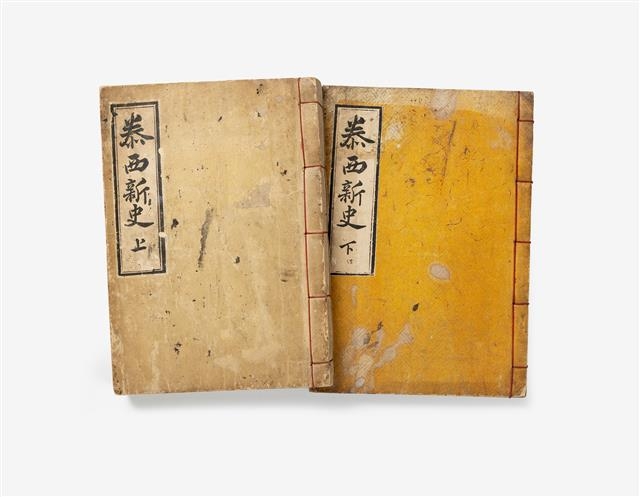 泰西新史 上
泰西新史 下